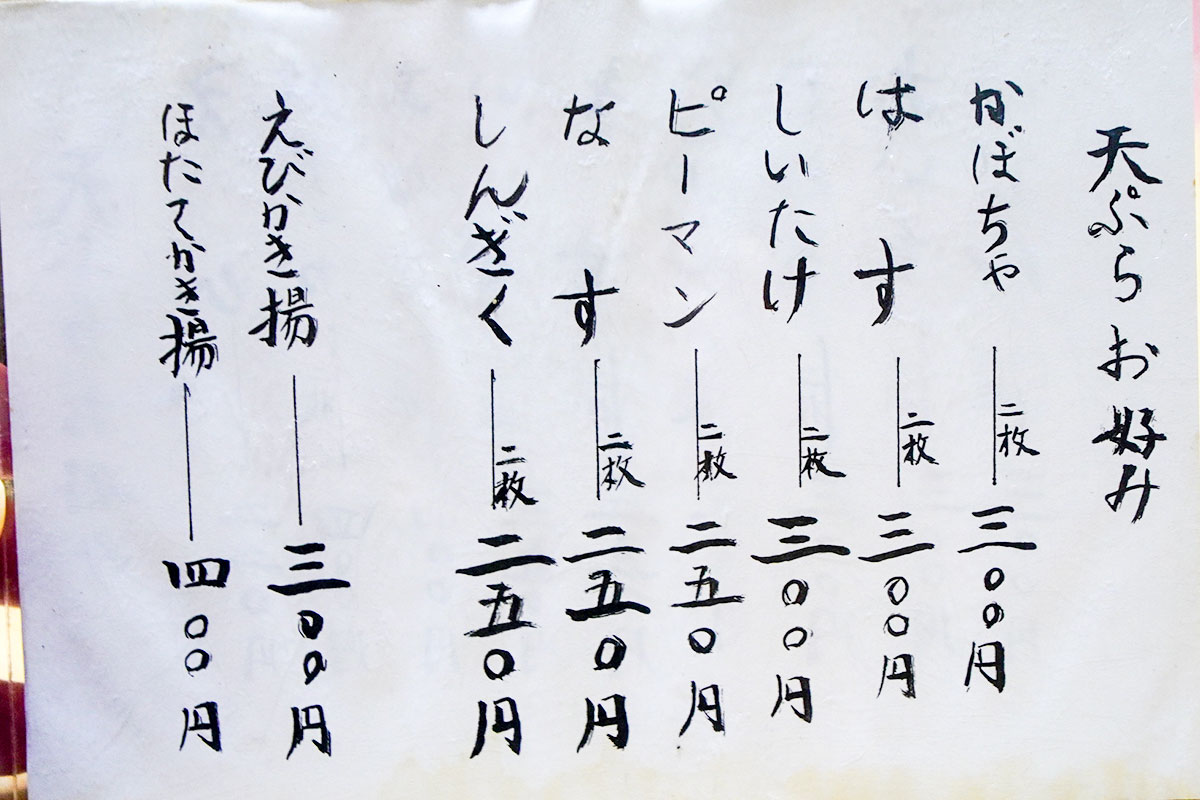 天ぷらお好み
かぼちゃ 二枚 三〇〇円
はす 二枚 三〇〇円
しいたけ 二枚 三〇〇円
ピーマン 二枚 二五〇円
なす 二枚 二五〇円
しんぎく 二枚 二五〇円
えびかき揚 三〇〇円
ほたてかき揚 四〇〇円